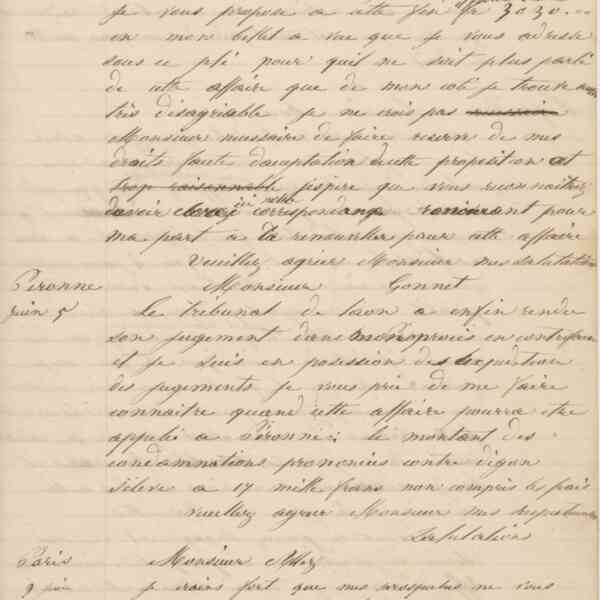 Je vous propose a cette fin fr 3030.--
en mon billet a vue que je vous adresse
sous ce pli pour quil ne soit plus parlé
de cette affaire que de mon coté je trouve
très désagréable je ne crois pas
Monsieur nécessaire de faire réserve de mes
droits faute dacceptation de cette proposition et
trop raisonnable jespère que vous reconnaitrez
devoir clore ici notre correspondance renonçant pour
ma part a la renouveller pour cette affaire
Veuillez agréer Monsieur mes salutations
Péronne Monsieur Gonnet
Juin 5 Le tribunal de Laon a enfin rendu
son jugement dans mon procès en contrefaçon
et je suis en possession des expéditions
des jugements je vous prie de me faire
connaitre quand cette affaire pourra etre
appelée a Péronne : le montant des
condamnations prononcées contre digon
séleve a 17 mille frans non compris les frais
veuillez agréer Monsieur mes respectueuses
Salutations
Paris Monsieur
9 juin je crains fort que mes prospectus ne vous